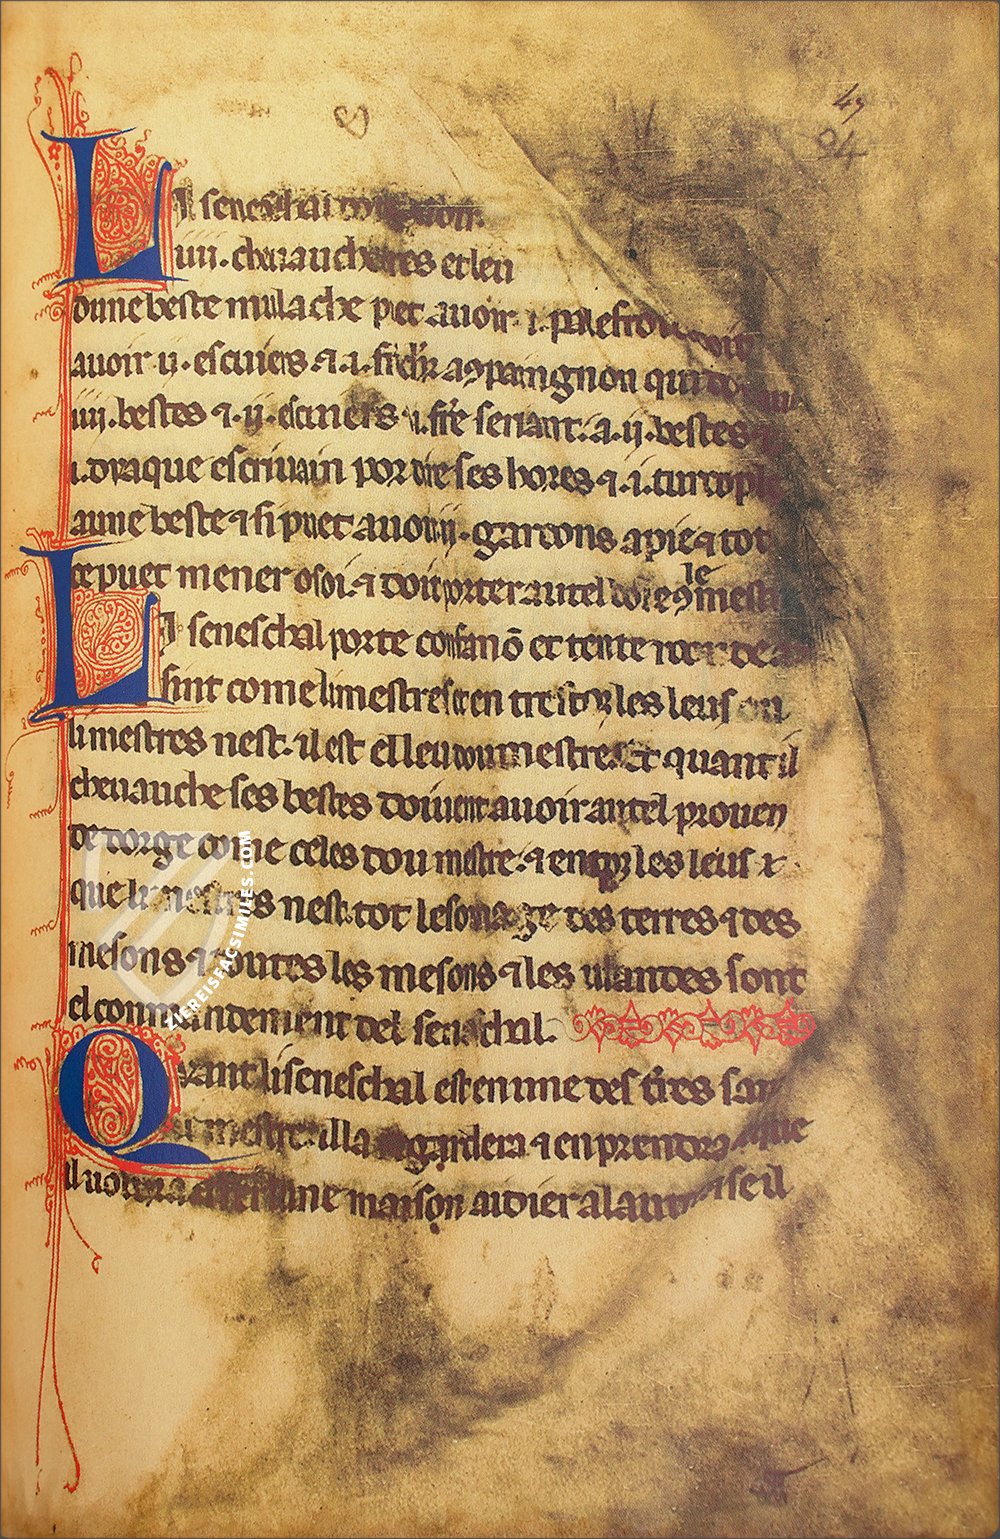 49
04
Li seneschau doit avoir
iiii. cheuaucheures et leu
dune beste mulache puet auoir .i. palefroi doit
auoir .ii. escuiers ⁊ .i. frere ꝯpaingnon qui doit
iiii. bestes ⁊ .ii. escuiers .i. frere seriant. a .ii. bestes
.i. diaque escriuain por dire ses hores ⁊ .i. turcople
a une beste ⁊ si puet auoir .ii. garcons a pie ⁊ tot
ce puet mener o soi. ⁊ doit porter autel
Li seneschal porte confanō et tente
sint come li mestres et en trestoz les leus ou
li mestres nest. il est el leu dou mestre. Et quant il
cheuauche ses bestes doiuent auoir autel prouen
de dorge come celes dou mestre. ⁊ en toz les leus
que li mestres nest. tot le des terres ⁊ des
mesons ⁊ toutes les mesons ⁊ les uiandes sont
el conmandement del seneschal.
Quant li seneschal est en une des tres sanz
mestre. il la regardera ⁊ en prendra
il uoudra une maison aidier a lautre ⁊ se il
AEREISFACSIMILES.COM